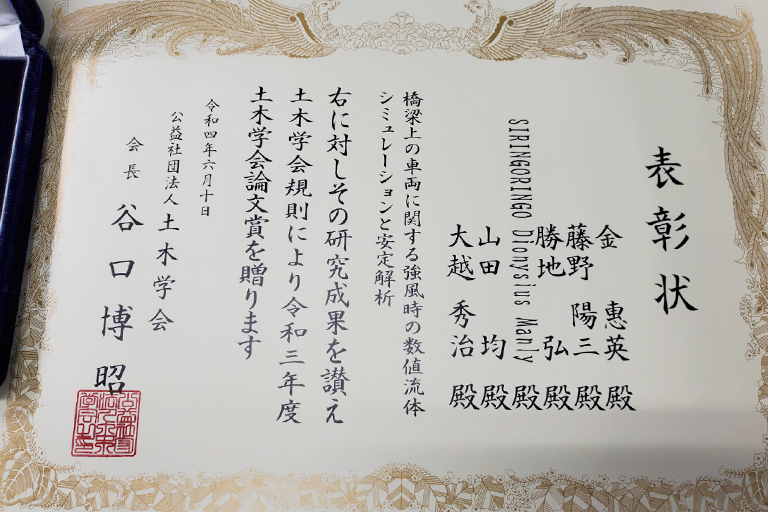 表彰状
金 惠英 殿
藤野 陽三 殿
勝地 弘 殿
SIRINGORINGO Dionysius Manly 殿
山田 均 殿
大越 秀治 殿
橋梁上の車両に関する強風時の数値流体
シミュレーションと安定解析
右に対しその研究成果を讃え
土木学会規則により令和三年度
土木学会論文賞を贈ります
令和四年六月十日
公益社団法人 土木学会
会長 谷口博昭